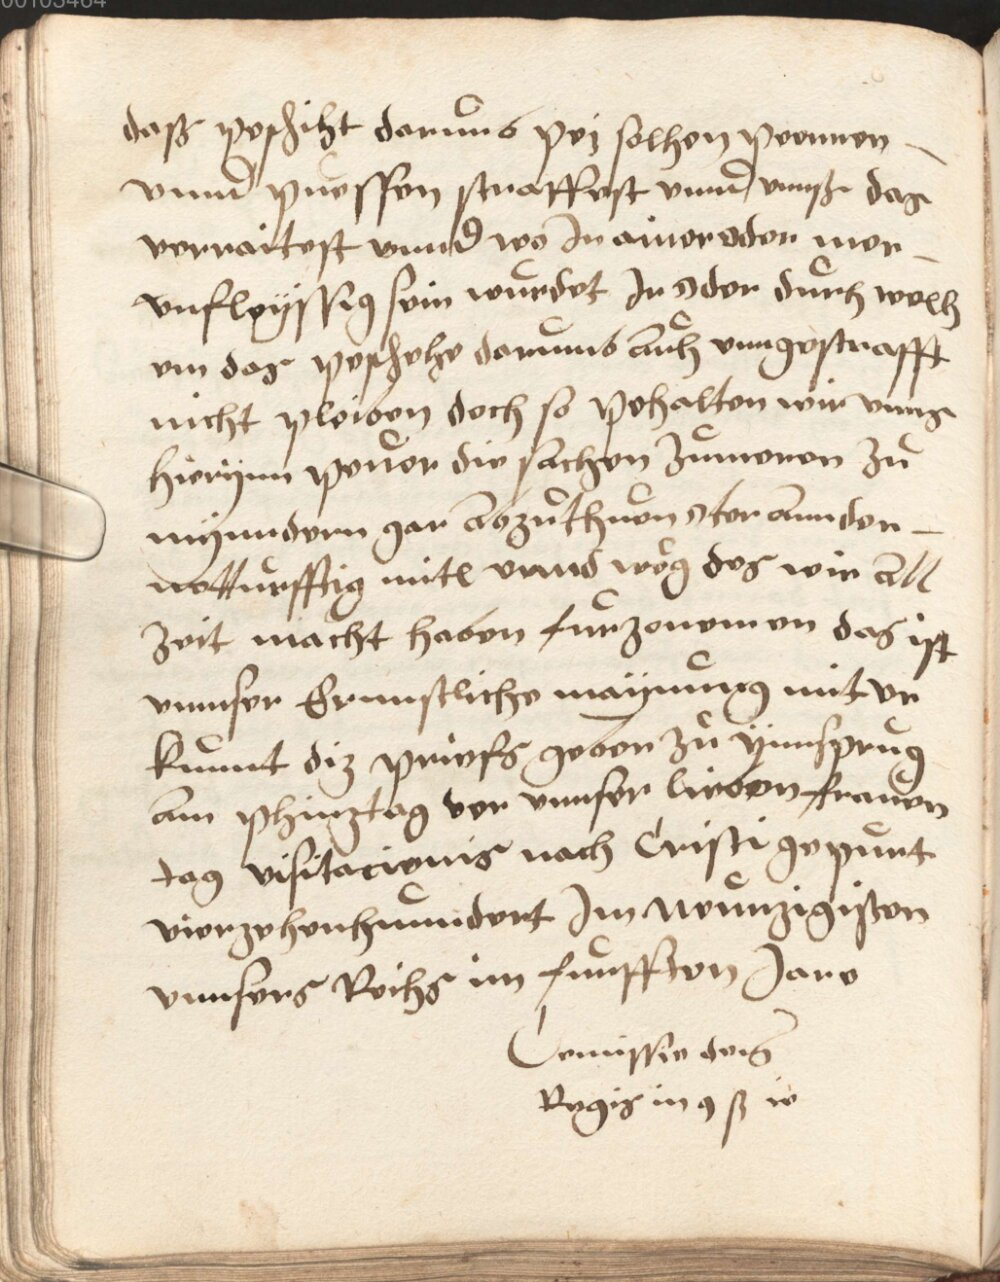 00103464
dasz peschiht darumb pej solhen peennen
vnnd puessen straffest vnnd vnnsz das
verraitest vnnd wo In ainer oder mer
vnfleyssig sein wurdet In Oder durch welh
en das peschehe darumb auch vnngestrafft
nicht pleiben doch so pehalten wir vnns
hierynn peuor die sachen Zumeren Zu
mynndern gar abzuthuen Oder annder
notturfftig mitl vnnd weg des wir all
Zeit macht haben furzenemen das ist
vnnser Ernnstliche maynung mit vr
kunnt diz priefs geben zu ynnsprug
am phinztag vor vnnser lieben frauen
tag visitacionis nach Cristi gepurt
vierzehenhunndert Im Neunzigisten
vnnsers Reichs im funfften Jare
Comissio
Regis in